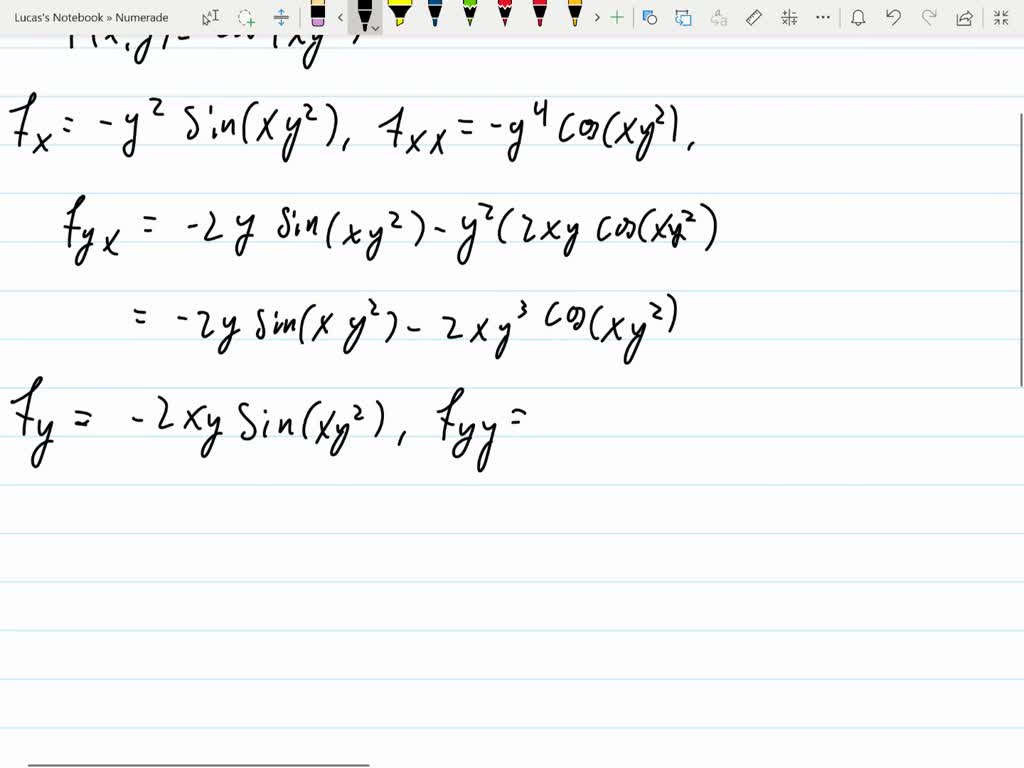 Lucas's Notebook » Numerade
f_x = -y² sin(xy²), f_xx = -y⁴ cos(xy²),
f_yx = -2y sin(xy²) - y²(2xy cos(xy²)
= -2y sin(xy²) - 2xy³ cos(xy²)
f_y = -2xy sin(xy²), f_yy =